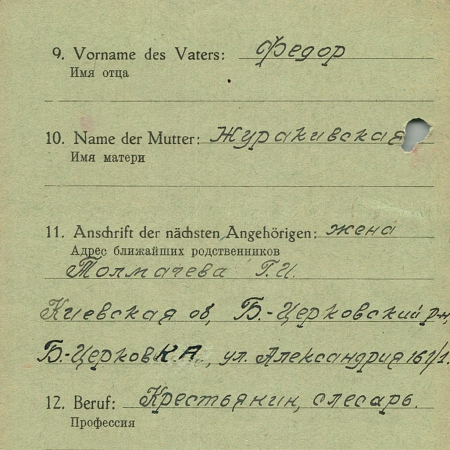 9. Vorname des Vaters: Федор
Имя отца
10. Name der Mutter: Журакивская
Имя матери
11. Anschrift der nächsten Angehörigen: жена
Адрес ближайших родственников
Толмачева Г.И.
Киевская об, Б.-Церковский р-н,
Б-Церковк.А., ул. Александрия
12. Beruf: Крестьянин, слесарь.
Профессия